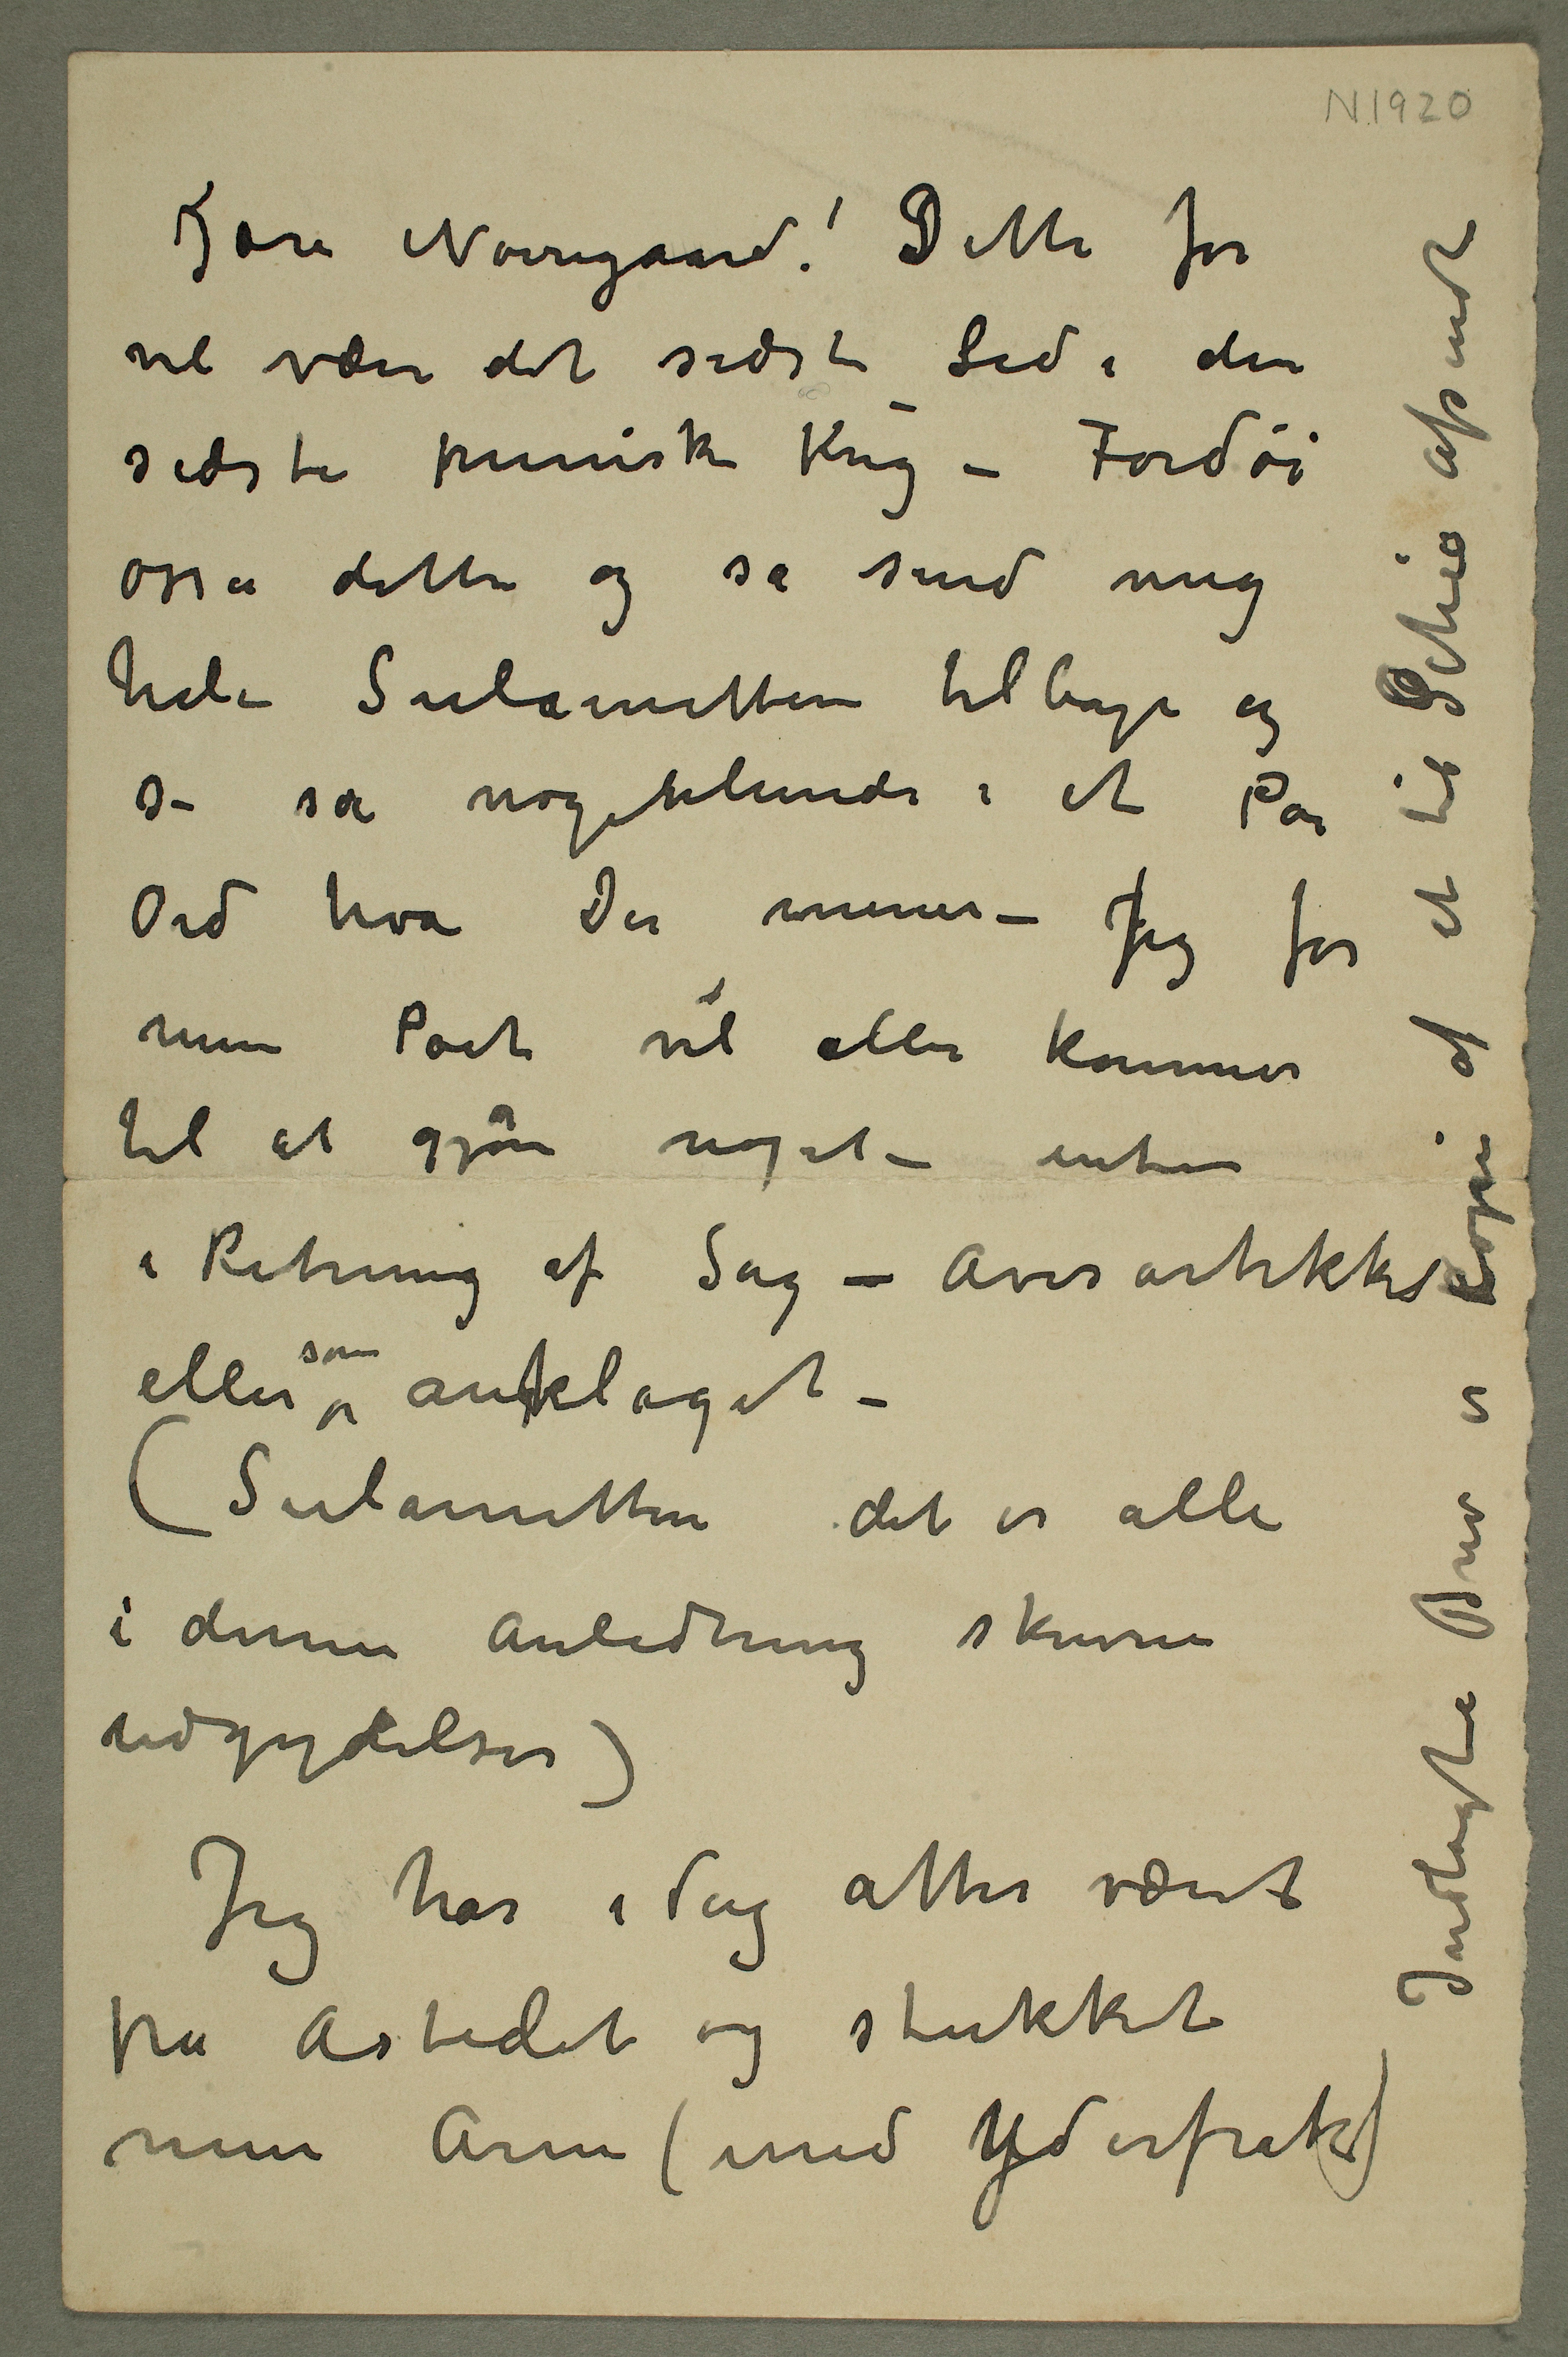 N.1920
Kjære Nørregaard! Dette får
vel være det sidste Led i den
sidste puniske Krig – Fordøi
også dette og så send mig
hele Sulamitten tilbage og
så nogetslunds i et Par
Ord hva De mener – Jeg for
min Part vil aller kommer
til at gjøre noget – enten
i Retning af Sag – Avisartikkel
eller som anklaget –
(Sulamitten det er alle
i denne Anledning skrevne
udgydelser)
Jeg har idag atter vært
på Åstedet og stukket
min Arm (med Yderfrak)
Indlagte Brev er kopi af et til Schiø afsendt